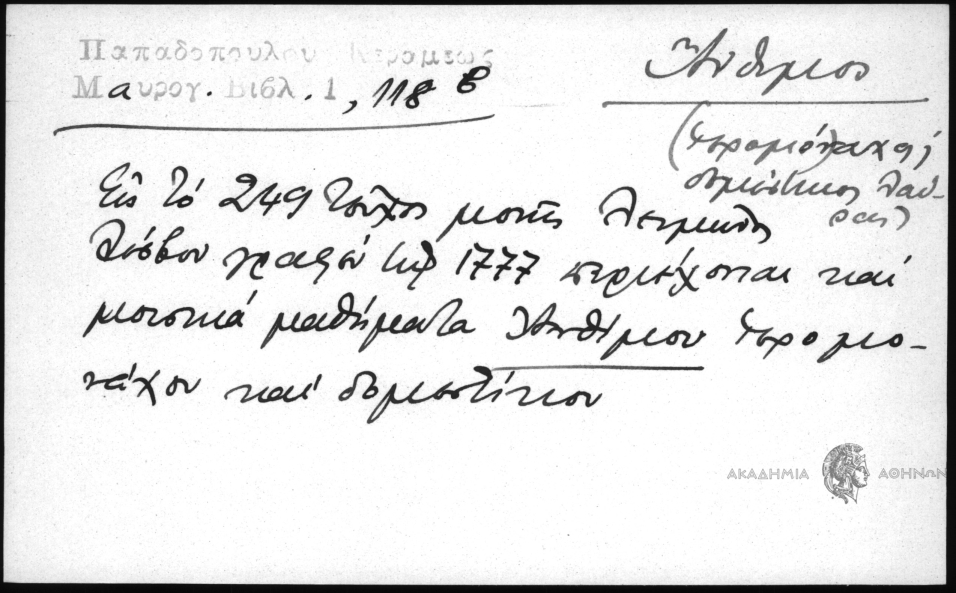 Παπαδοπούλου Κεραμέως
Μαυρογ. Βιβλ. 1, 118 β
Ἄνθιμος
(ἱερομόναχος
δομέστικος Λαύ-
ρας)
Εἰς τό 249 τεῦχος μονῆς Λειμῶνος
Λέσβου γραφέν τῷ 1777 περιέχονται καί
μουσικά μαθήματα Ἀνθίμου ἱερομο-
νάχου καί δομεστίκου
ΑΚΑΔΗΜΙΑ ΑΘΗΝΩΝ